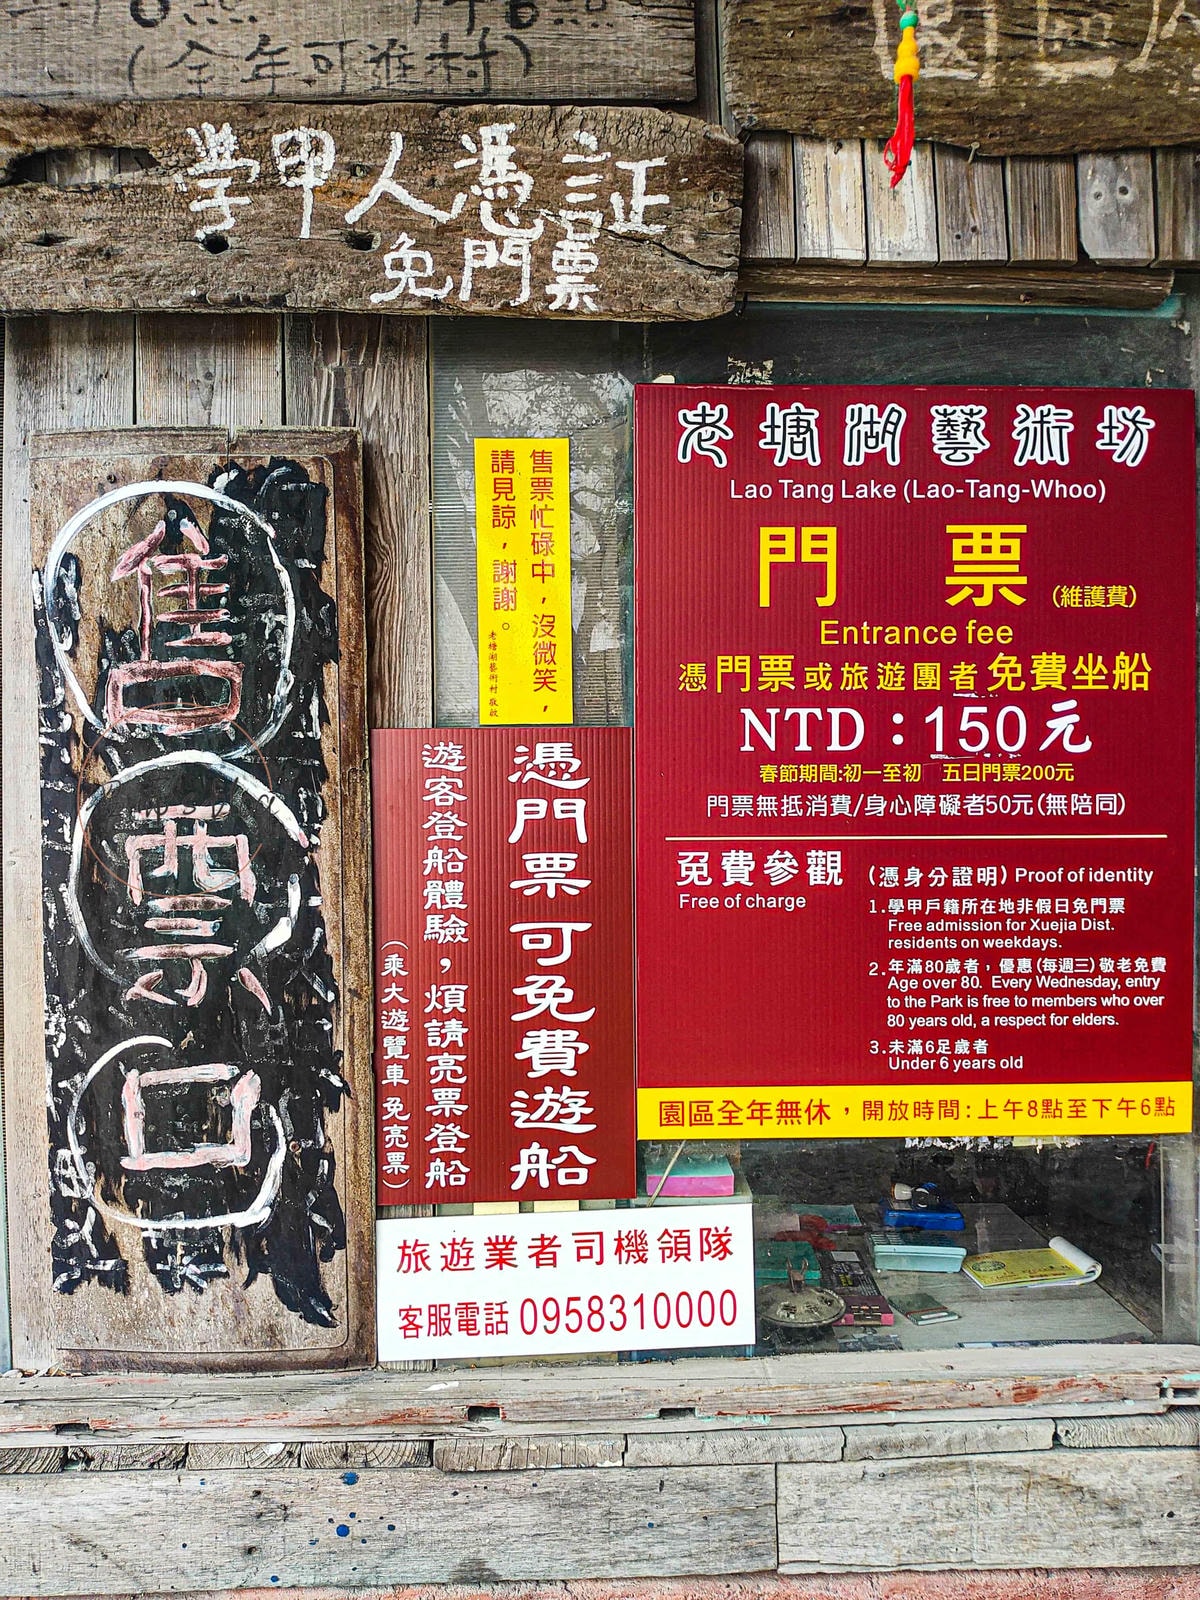 (全年可進村)
學甲人憑証
免門票
售票口
售票忙碌中，沒微笑，
請見諒，謝謝。
老塘湖藝術村 敬啟
憑門票可免費遊船
遊客登船體驗，煩請亮票登船
(乘大遊覽車免亮票)
旅遊業者司機領隊
客服電話 0958310000
老塘湖藝術坊
Lao Tang Lake (Lao-Tang-Whoo)
門 票 (維護費)
Entrance fee
憑門票或旅遊團者免費坐船
NTD：150元
春節期間:初一至初 五日門票200元
門票無抵消費/身心障礙者50元(無陪同)
免費參觀 (憑身分證明) Proof of identity
Free of charge
1.學甲戶籍所在地非假日免門票
Free admission for Xuejia Dist.
residents on weekdays.
2.年滿80歲者，優惠(每週三)敬老免費
Age over 80. Every Wednesday, entry
to the Park is free to members who over
80 years old, a respect for elders.
3.未滿6足歲者
Under 6 years old
園區全年無休，開放時間:上午8點至下午6點